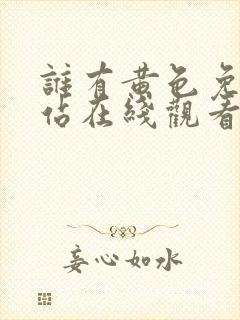 誰有黄色免
佔在綫觀看
妾心如水